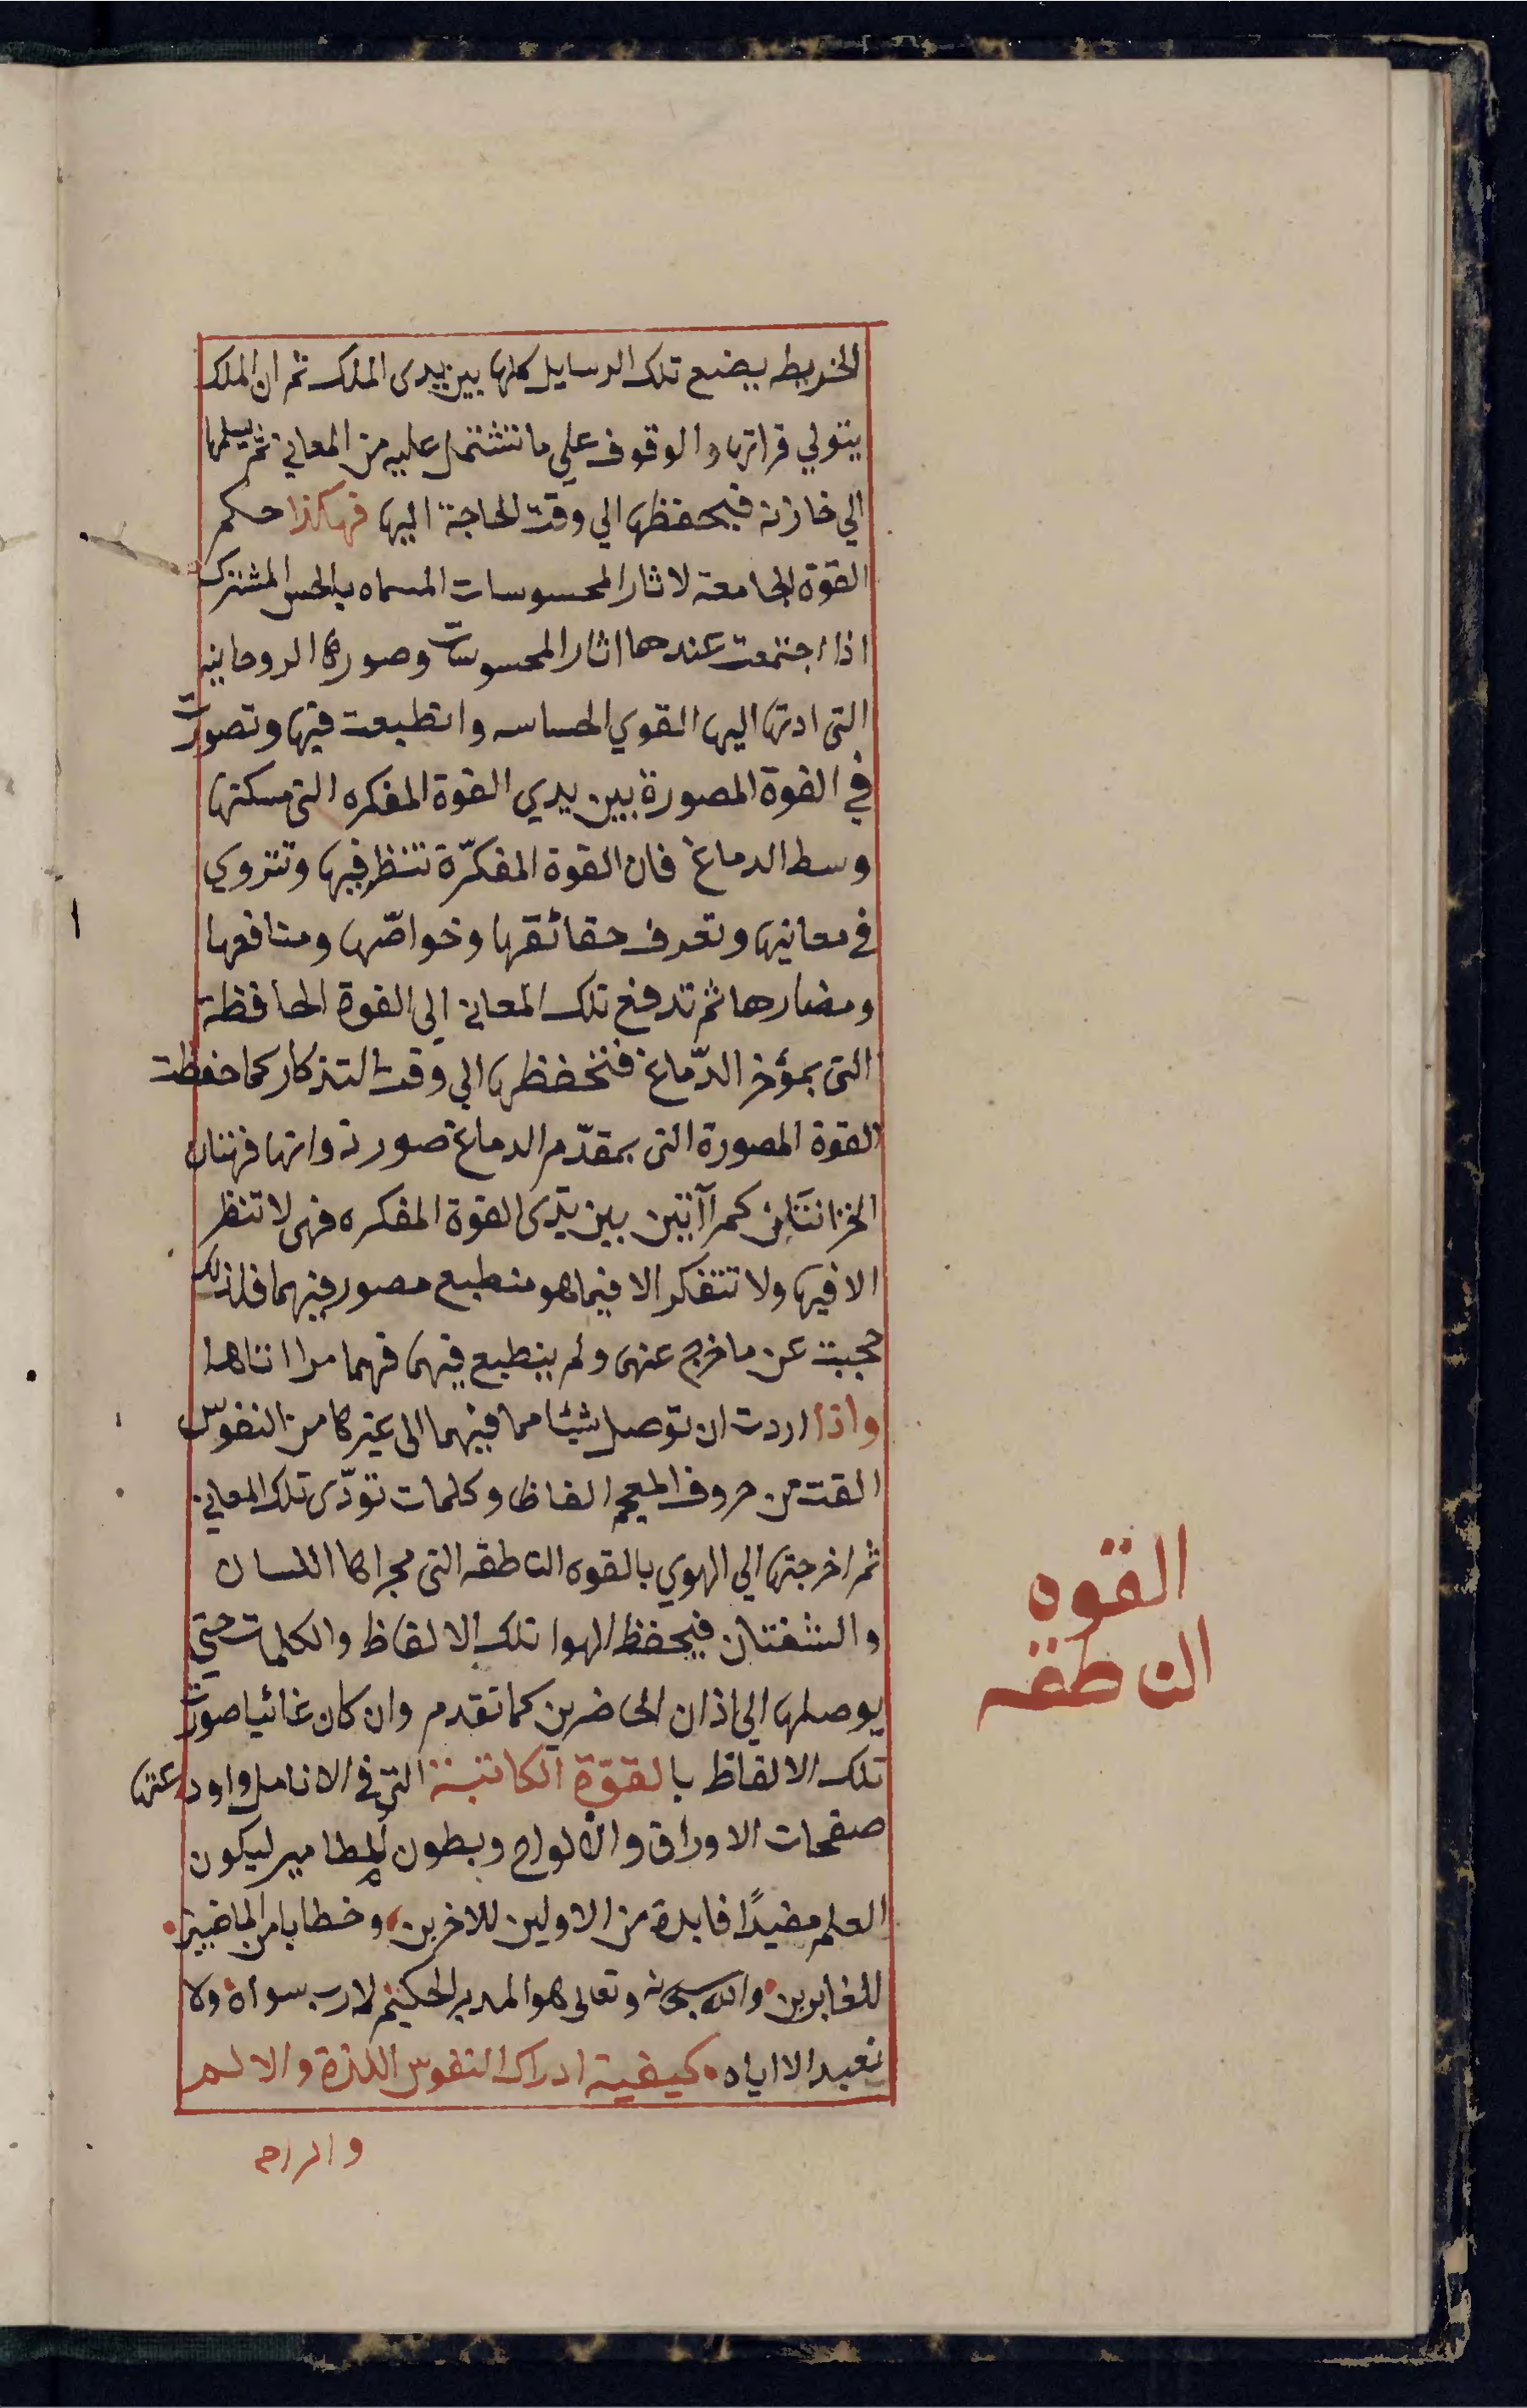 الخريطه يضع تلك الرسايل كلها بين يدى الملك ثم ان الملك
يتولي قراتها والوقوف علي ما تشتمل عليه من المعاني ثم يسلمها
الي خازنه فيحفظها الي وقت الحاجة اليها فهكذا حكم
القوة الجامعة لاثار المحسوسات المسماه بالحس المشترك
اذا اجتمعت عندها اثار المحسوسات وصورها الروحانيه
التى ادتها اليها القوي الحساسه وانطبعت فيها وتصورت
في القوة المصورة بين يدي القوة المفكره التى مسكنها
وسط الدماغ فان القوة المفكّرة تنظر فيها وتتروي
في معانيها وتعرف حقائقها وخواصّها ومنافعها
ومضارها ثم تدفع تلك المعاني الي القوة الحافظة
التى بمؤخر الدّماغ فتحفظها الي وقت التذكار كما حفظت
القوة المصورة التى بمقدّم الدماغ صورة ذواتها فهتان
الخزانتان كمرآتين بين يدى القوة المفكره فهى لا تنظر
الا فيها ولا تتفكر الا فيما هو منطبع مصور فيهما فلذلك
حجبت عن ما خرج عنها ولم ينطبع فيها فهما مراتاها
واذا اردت ان توصل شيئا مما فيهما الى غيركا من النفوس
القت من حروف المعجم الفاظا وكلمات تودّى تلك المعاني
ثم اخرجتها الي الهوي بالقوه الناطقه التى مجراها اللسان
والشفتان فيحفظ الهوا تلك الالفاظ والكلمات حتي
يوصلها الي اذان الحاضرين كما تقدم وان كان غائبا صورت
تلك الالفاظ بالقوّة الكاتبة التي في الانامل واودعتها
صفحات الاوراق والالواح وبطون المطامير ليكون
العلم مفيدًا فايدة من الاولين للاخرين وخطابا من الماضيين
للغابرين والله سبحانه وتعالى هو المدبر الحكيم لا رب سواه ولا
نعبد الا اياه كيفية ادراك النفوس اللذة والالم
والراحه
القوه
الناطقه